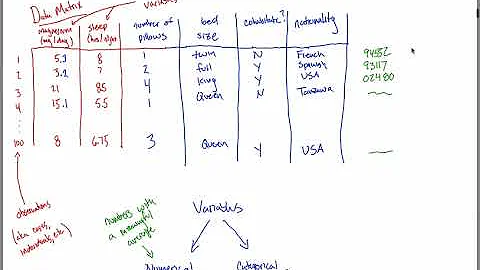 Data Matrix
variables
magnesium (mg/day) sleep (hrs/night) number of pillows bed size cohabitate? nationality
1 5.2 8 1 twin N French 94552
2 3.2 7 2 full Y Spanish 93117
3 21 8.5 4 king Y USA 02480
4 15.1 5.5 1 Queen N
100 8 6.75 3 Queen Y USA
observations
(aka cases,
numbers with
a meaningful
average
Variables
Numerical Categorical